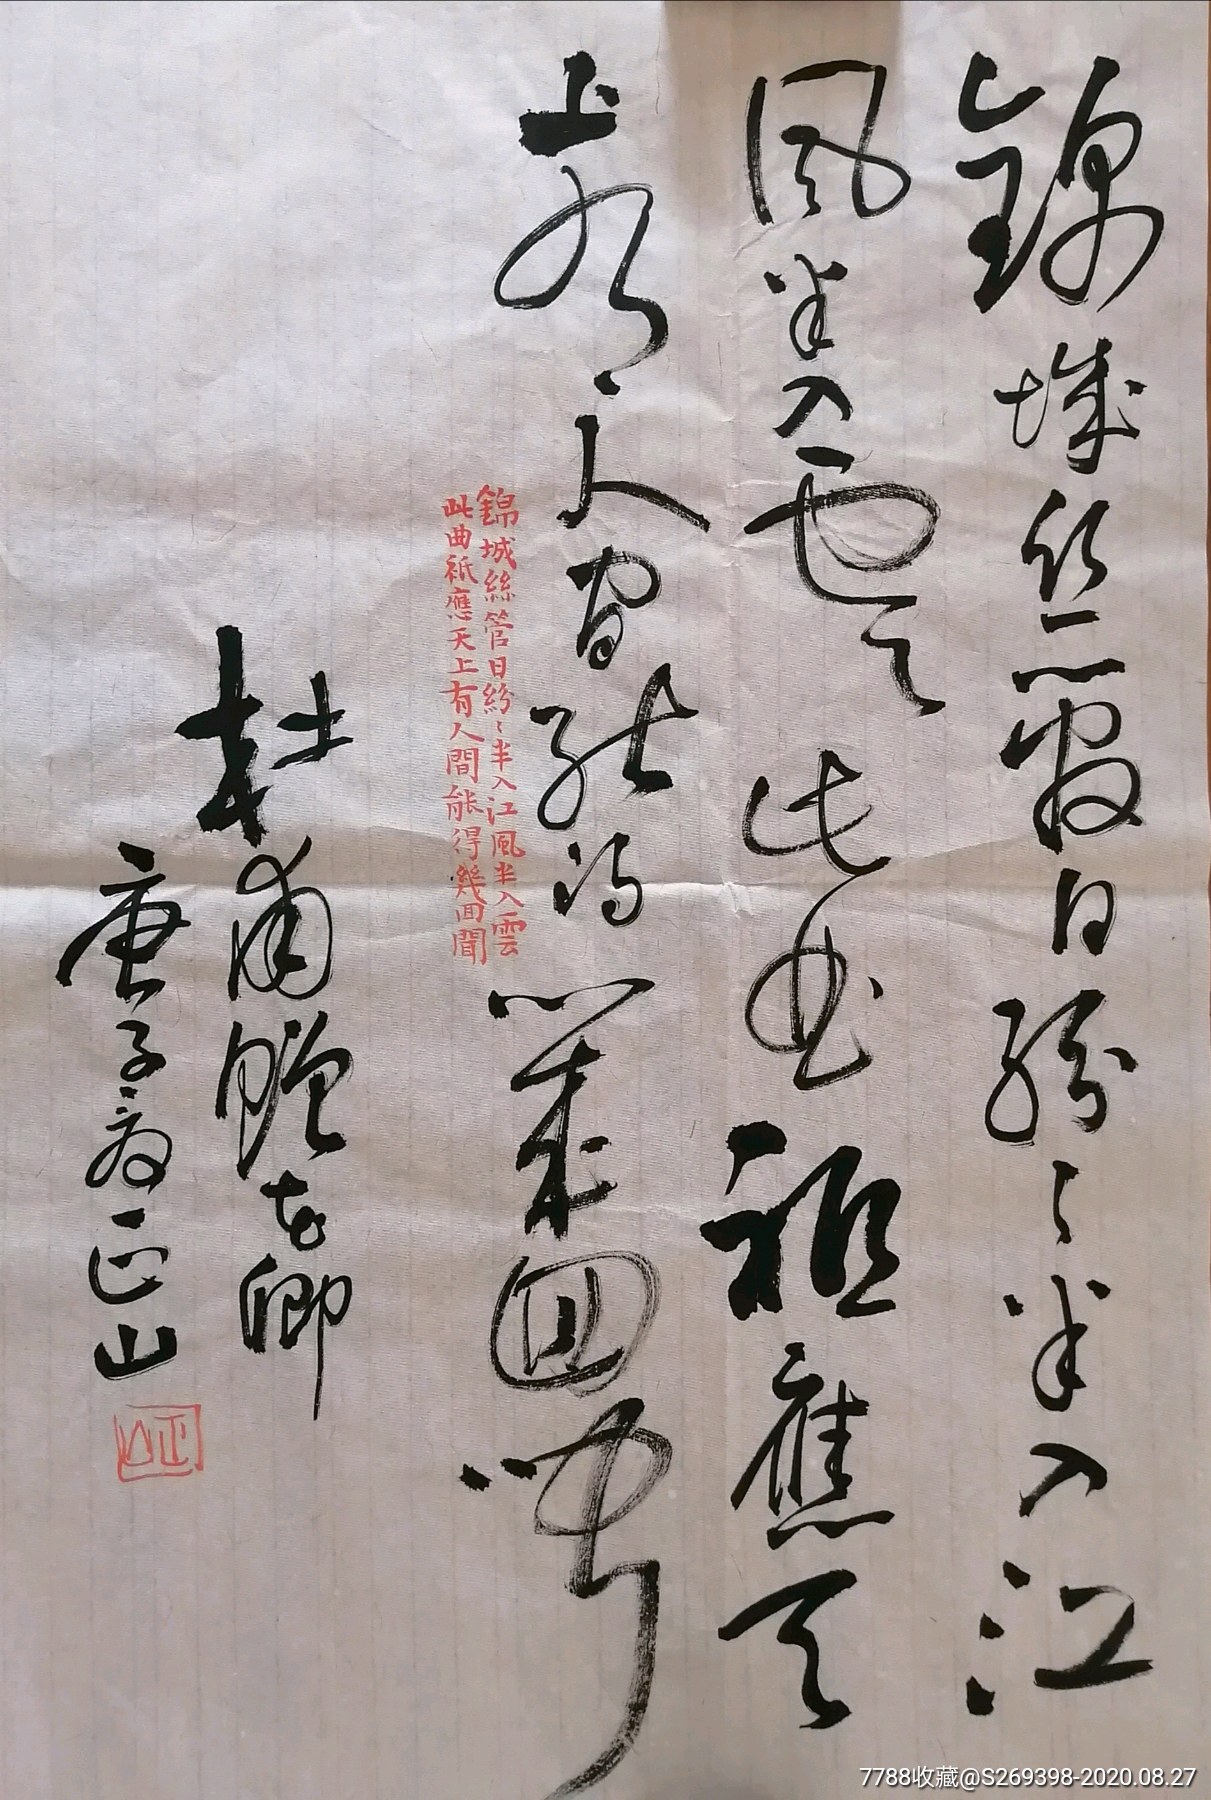 錦城絲管日紛〻半入江
風半入雲此曲祗應天
上有人間能得幾回聞
錦城絲管日紛〻半入江風半入雲
此曲祇應天上有人間能得幾回聞
杜甫贈花卿
庚子夏正山
正山
7788收藏@S269398-2020.08.27